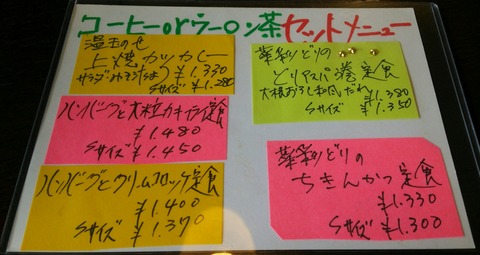 コーヒーorウーロン茶セットメニュー
温玉のせ
上焼カツカレー
サラダ ¥1.330
Sサイズ ¥1.280
ハンバーグと大粒カキフライ定食
¥1.480
Sサイズ ¥1.450
ハンバーグとクリームコロッケ定食
¥1.400
Sサイズ ¥1.370
華彩どりの
とりアスパラ巻定食
大根おろし和風だれ ¥1.380
Sサイズ ¥1.350
華彩どりの
ちきんかつ定食
¥1.330
Sサイズ ¥1.300